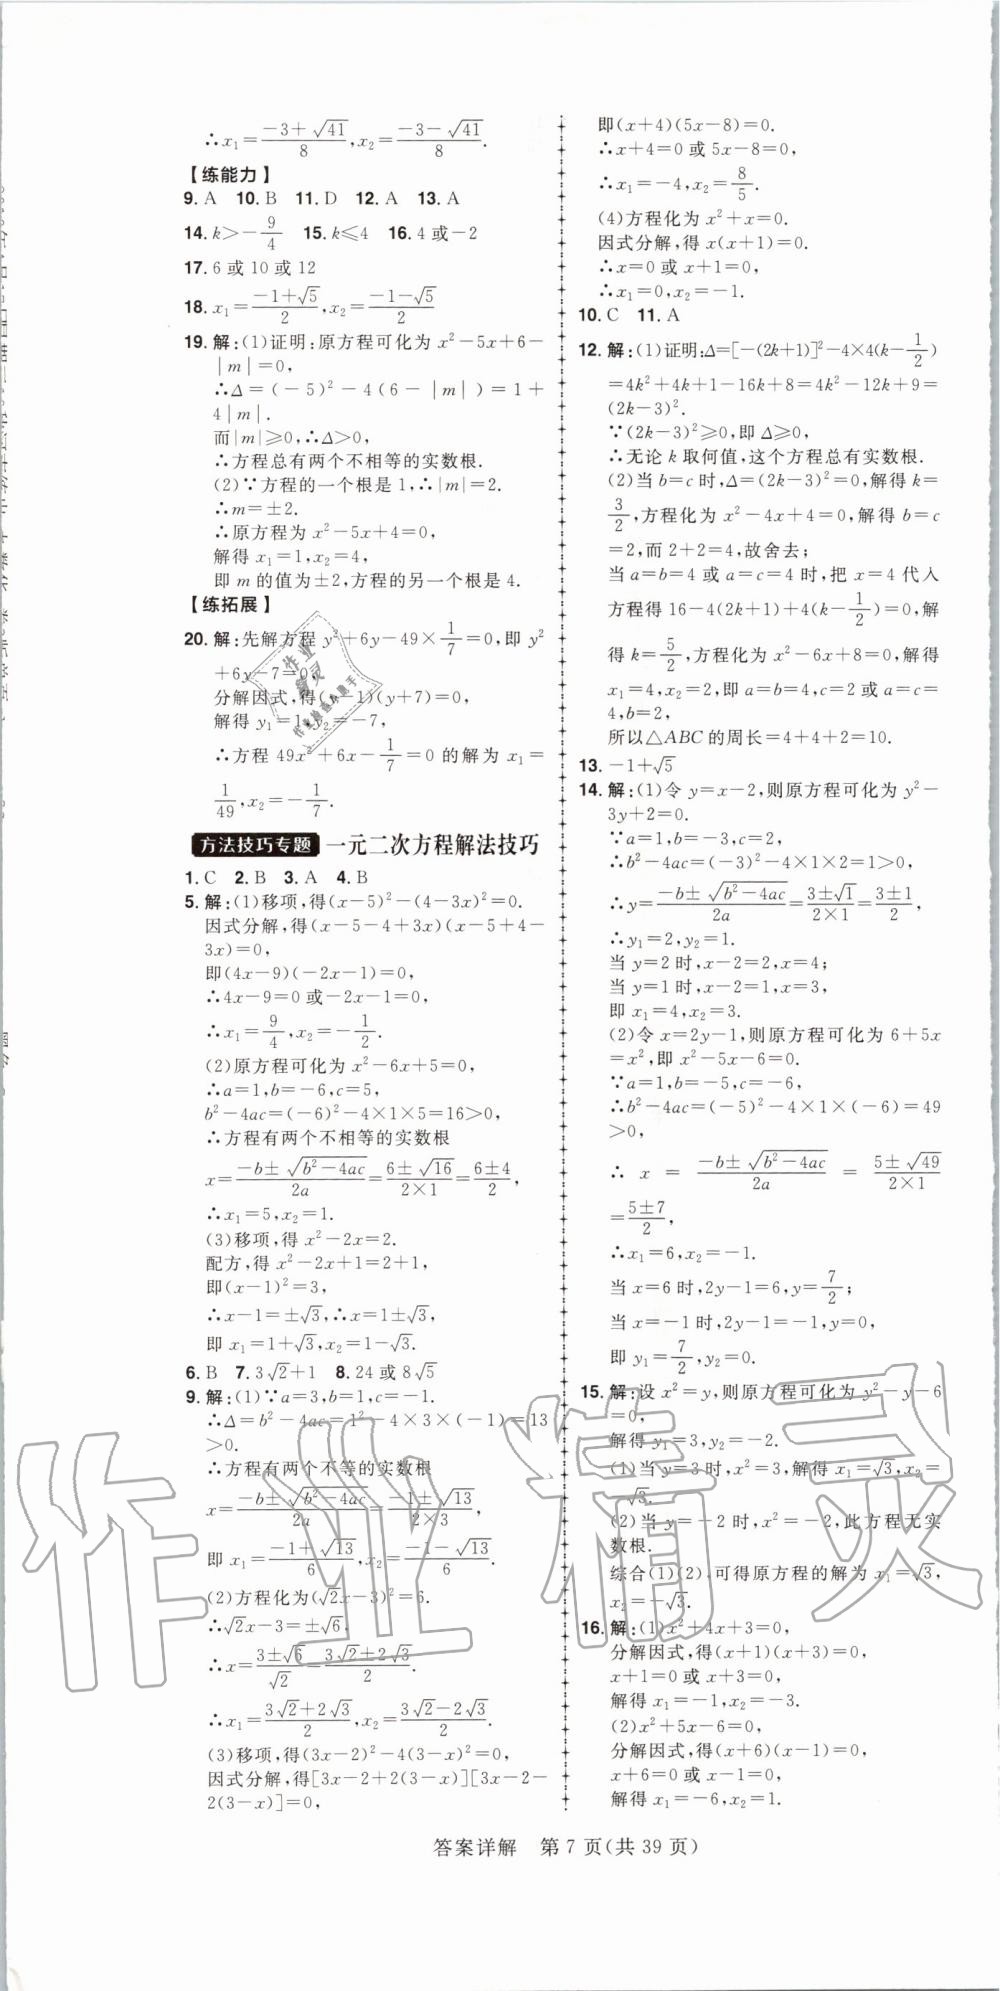 ∴x₁=(-3+√41)/8,x₂=(-3-√41)/8.
【练能力】
9. A 10. B 11. D 12. A 13. A
14. k>-9/4 15. k≤4 16. 4 或-2
17. 6 或 10 或 12
18. x₁=(-1+√5)/2,x₂=(-1-√5)/2
19. 解:(1)证明:原方程可化为 x²-5x+6-
|m|=0,
∴Δ=(-5)²-4(6-|m|)=1+
4|m|.
而|m|≥0,∴Δ>0,
∴方程总有两个不相等的实数根.
(2)∵方程的一个根是 1,∴|m|=2.
∴m=±2.
∴原方程为 x²-5x+4=0,
解得 x₁=1,x₂=4,
即 m 的值为±2,方程的另一个根是 4.
【练拓展】
20. 解:先解方程 y²+6y-49×1/7=0,即 y²
+6y-7=0,
分解因式,得(y-1)(y+7)=0,
解得 y₁=1,y₂=-7,
∴方程 49x²+6x-1/7=0 的解为 x₁=
1/49,x₂=-1/7.
方法技巧专题 一元二次方程解法技巧
1. C 2. B 3. A 4. B
5. 解:(1)移项,得(x-5)²-(4-3x)²=0.
因式分解,得(x-5-4+3x)(x-5+4-
3x)=0,
即(4x-9)(-2x-1)=0,
∴4x-9=0或-2x-1=0,
∴x₁=9/4,x₂=-1/2.
(2)原方程可化为 x²-6x+5=0,
∴a=1,b=-6,c=5,
b²-4ac=(-6)²-4×1×5=16>0,
∴方程有两个不相等的实数根
x=(-b±√(b²-4ac))/2a=(6±√16)/(2×1)=(6±4)/2,
∴x₁=5,x₂=1.
(3)移项,得 x²-2x=2.
配方,得 x²-2x+1=2+1,
即(x-1)²=3,
∴x-1=±√3,∴x=1±√3,
即 x₁=1+√3,x₂=1-√3.
6. B 7. 3√2+1 8. 24 或 8√5
9. 解:(1)∵a=3,b=1,c=-1.
∴Δ=b²-4ac=1²-4×3×(-1)=13
>0.
∴方程有两个不等的实数根
x=(-b±√(b²-4ac))/2a=(-1±√13)/(2×3),
即 x₁=(-1+√13)/6,x₂=(-1-√13)/6.
(2)方程化为(√2x-3)²=6.
∴√2x-3=±√6,
∴x=(3±√6)/√2=(3√2±2√3)/2,
∴x₁=(3√2+2√3)/2,x₂=(3√2-2√3)/2.
(3)移项,得(3x-2)²-4(3-x)²=0,
因式分解,得[3x-2+2(3-x)][3x-2-
2(3-x)]=0,
即(x+4)(5x-8)=0.
∴x+4=0 或 5x-8=0,
∴x₁=-4,x₂=8/5.
(4)方程化为 x²+x=0.
因式分解,得 x(x+1)=0.
∴x=0 或 x+1=0,
∴x₁=0,x₂=-1.
10. C 11. A
12. 解:(1)证明:Δ=[-(2k+1)]²-4×4(k-1/2)
=4k²+4k+1-16k+8=4k²-12k+9=
(2k-3)².
∵(2k-3)²≥0,即 Δ≥0,
∴无论 k 取何值,这个方程总有实数根.
(2)当 b=c 时,Δ=(2k-3)²=0,解得 k=
3/2,方程化为 x²-4x+4=0,解得 b=c
=2,而 2+2=4,故舍去;
当 a=b=4 或 a=c=4 时,把 x=4 代入
方程得 16-4(2k+1)+4(k-1/2)=0,解
得 k=5/2,方程化为 x²-6x+8=0,解得
x₁=4,x₂=2,即 a=b=4,c=2 或 a=c=
4,b=2,
所以△ABC 的周长=4+4+2=10.
13. -1+√5
14. 解:(1)令 y=x-2,则原方程可化为 y²-
3y+2=0.
∵a=1,b=-3,c=2,
∴b²-4ac=(-3)²-4×1×2=1>0,
∴y=(-b±√(b²-4ac))/2a=(3±√1)/(2×1)=(3±1)/2,
∴y₁=2,y₂=1.
当 y=2 时,x-2=2,x=4;
当 y=1 时,x-2=1,x=3,
即 x₁=4,x₂=3.
(2)令 x=2y-1,则原方程可化为 6+5x
=x²,即 x²-5x-6=0.
∵a=1,b=-5,c=-6,
∴b²-4ac=(-5)²-4×1×(-6)=49
>0,
∴ x = (-b±√(b²-4ac))/2a = (5±√49)/(2×1)
=(5±7)/2,
∴x₁=6,x₂=-1.
当 x=6 时,2y-1=6,y=7/2;
当 x=-1 时,2y-1=-1,y=0,
即 y₁=7/2,y₂=0.
15. 解:设 x²=y,则原方程可化为 y²-y-6
=0,
解得 y₁=3,y₂=-2.
(1)当 y=3 时,x²=3,解得 x₁=√3,x₂=
-√3.
(2)当 y=-2 时,x²=-2,此方程无实
数根.
综合(1)(2),可得原方程的解为 x₁=√3,
x₂=-√3.
16. 解:(1)x²+4x+3=0,
分解因式,得(x+1)(x+3)=0,
x+1=0 或 x+3=0,
解得 x₁=-1,x₂=-3.
(2)x²+5x-6=0,
分解因式,得(x+6)(x-1)=0,
x+6=0 或 x-1=0,
解得 x₁=-6,x₂=1.
答案详解 第 7 页(共 39 页)
作业精灵